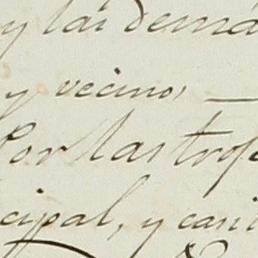 y las demá
y vecino,
Por las trop
cipal, y casi